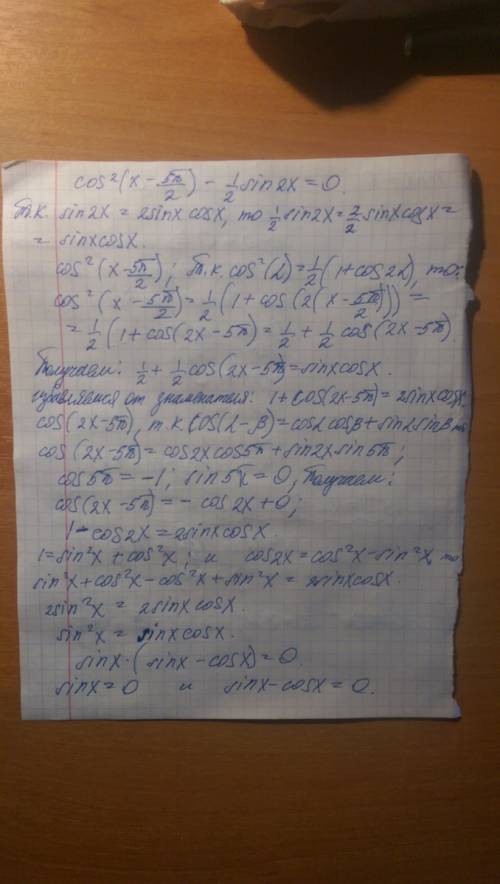 cos²(x - 5π/2) - 1/2 sin2x = 0.
Т.к. sin2x = 2sinx cosx, то 1/2 sin2x = 2/2 sinx cosx =
= sinxcosx.
cos²(x - 5π/2); Т.к. cos²(α) = 1/2(1+cos2α), то:
cos²(x - 5π/2) = 1/2(1 + cos(2(x - 5π/2))) =
= 1/2(1 + cos(2x - 5π) = 1/2 + 1/2 cos(2x - 5π).
Получаем: 1/2 + 1/2 cos(2x - 5π) = sinxcosx.
избавляемся от знаменателя: 1 + cos(2x - 5π) = 2sinxcosx.
cos(2x - 5π), т.к. cos(α - β) = cosα cosβ + sinα sinβ то
cos(2x - 5π) = cos2x cos5π + sin2x sin5π;
cos5π = -1; sin5π = 0, Получаем:
cos(2x - 5π) = - cos2x + 0;
1 - cos2x = 2sinxcosx.
1 = sin²x + cos²x; и cos2x = cos²x - sin²x, то
sin²x + cos²x - cos²x + sin²x = 2sinxcosx.
2sin²x = 2sinx cosx.
sin²x = sinx cosx.
sinx · (sinx - cosx) = 0.
sinx = 0 и sinx - cosx = 0.